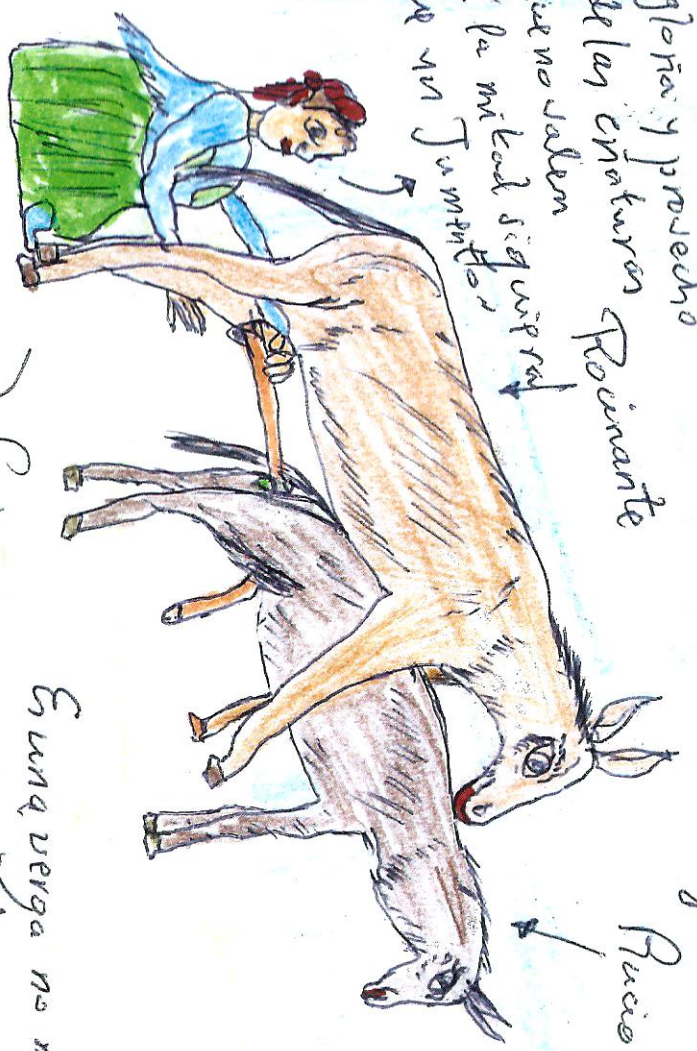 gloria y provecho
de las criaturas
no valen
la mitad siquiera
un Jumentos
Rocinante
Rucio
Es una verga no